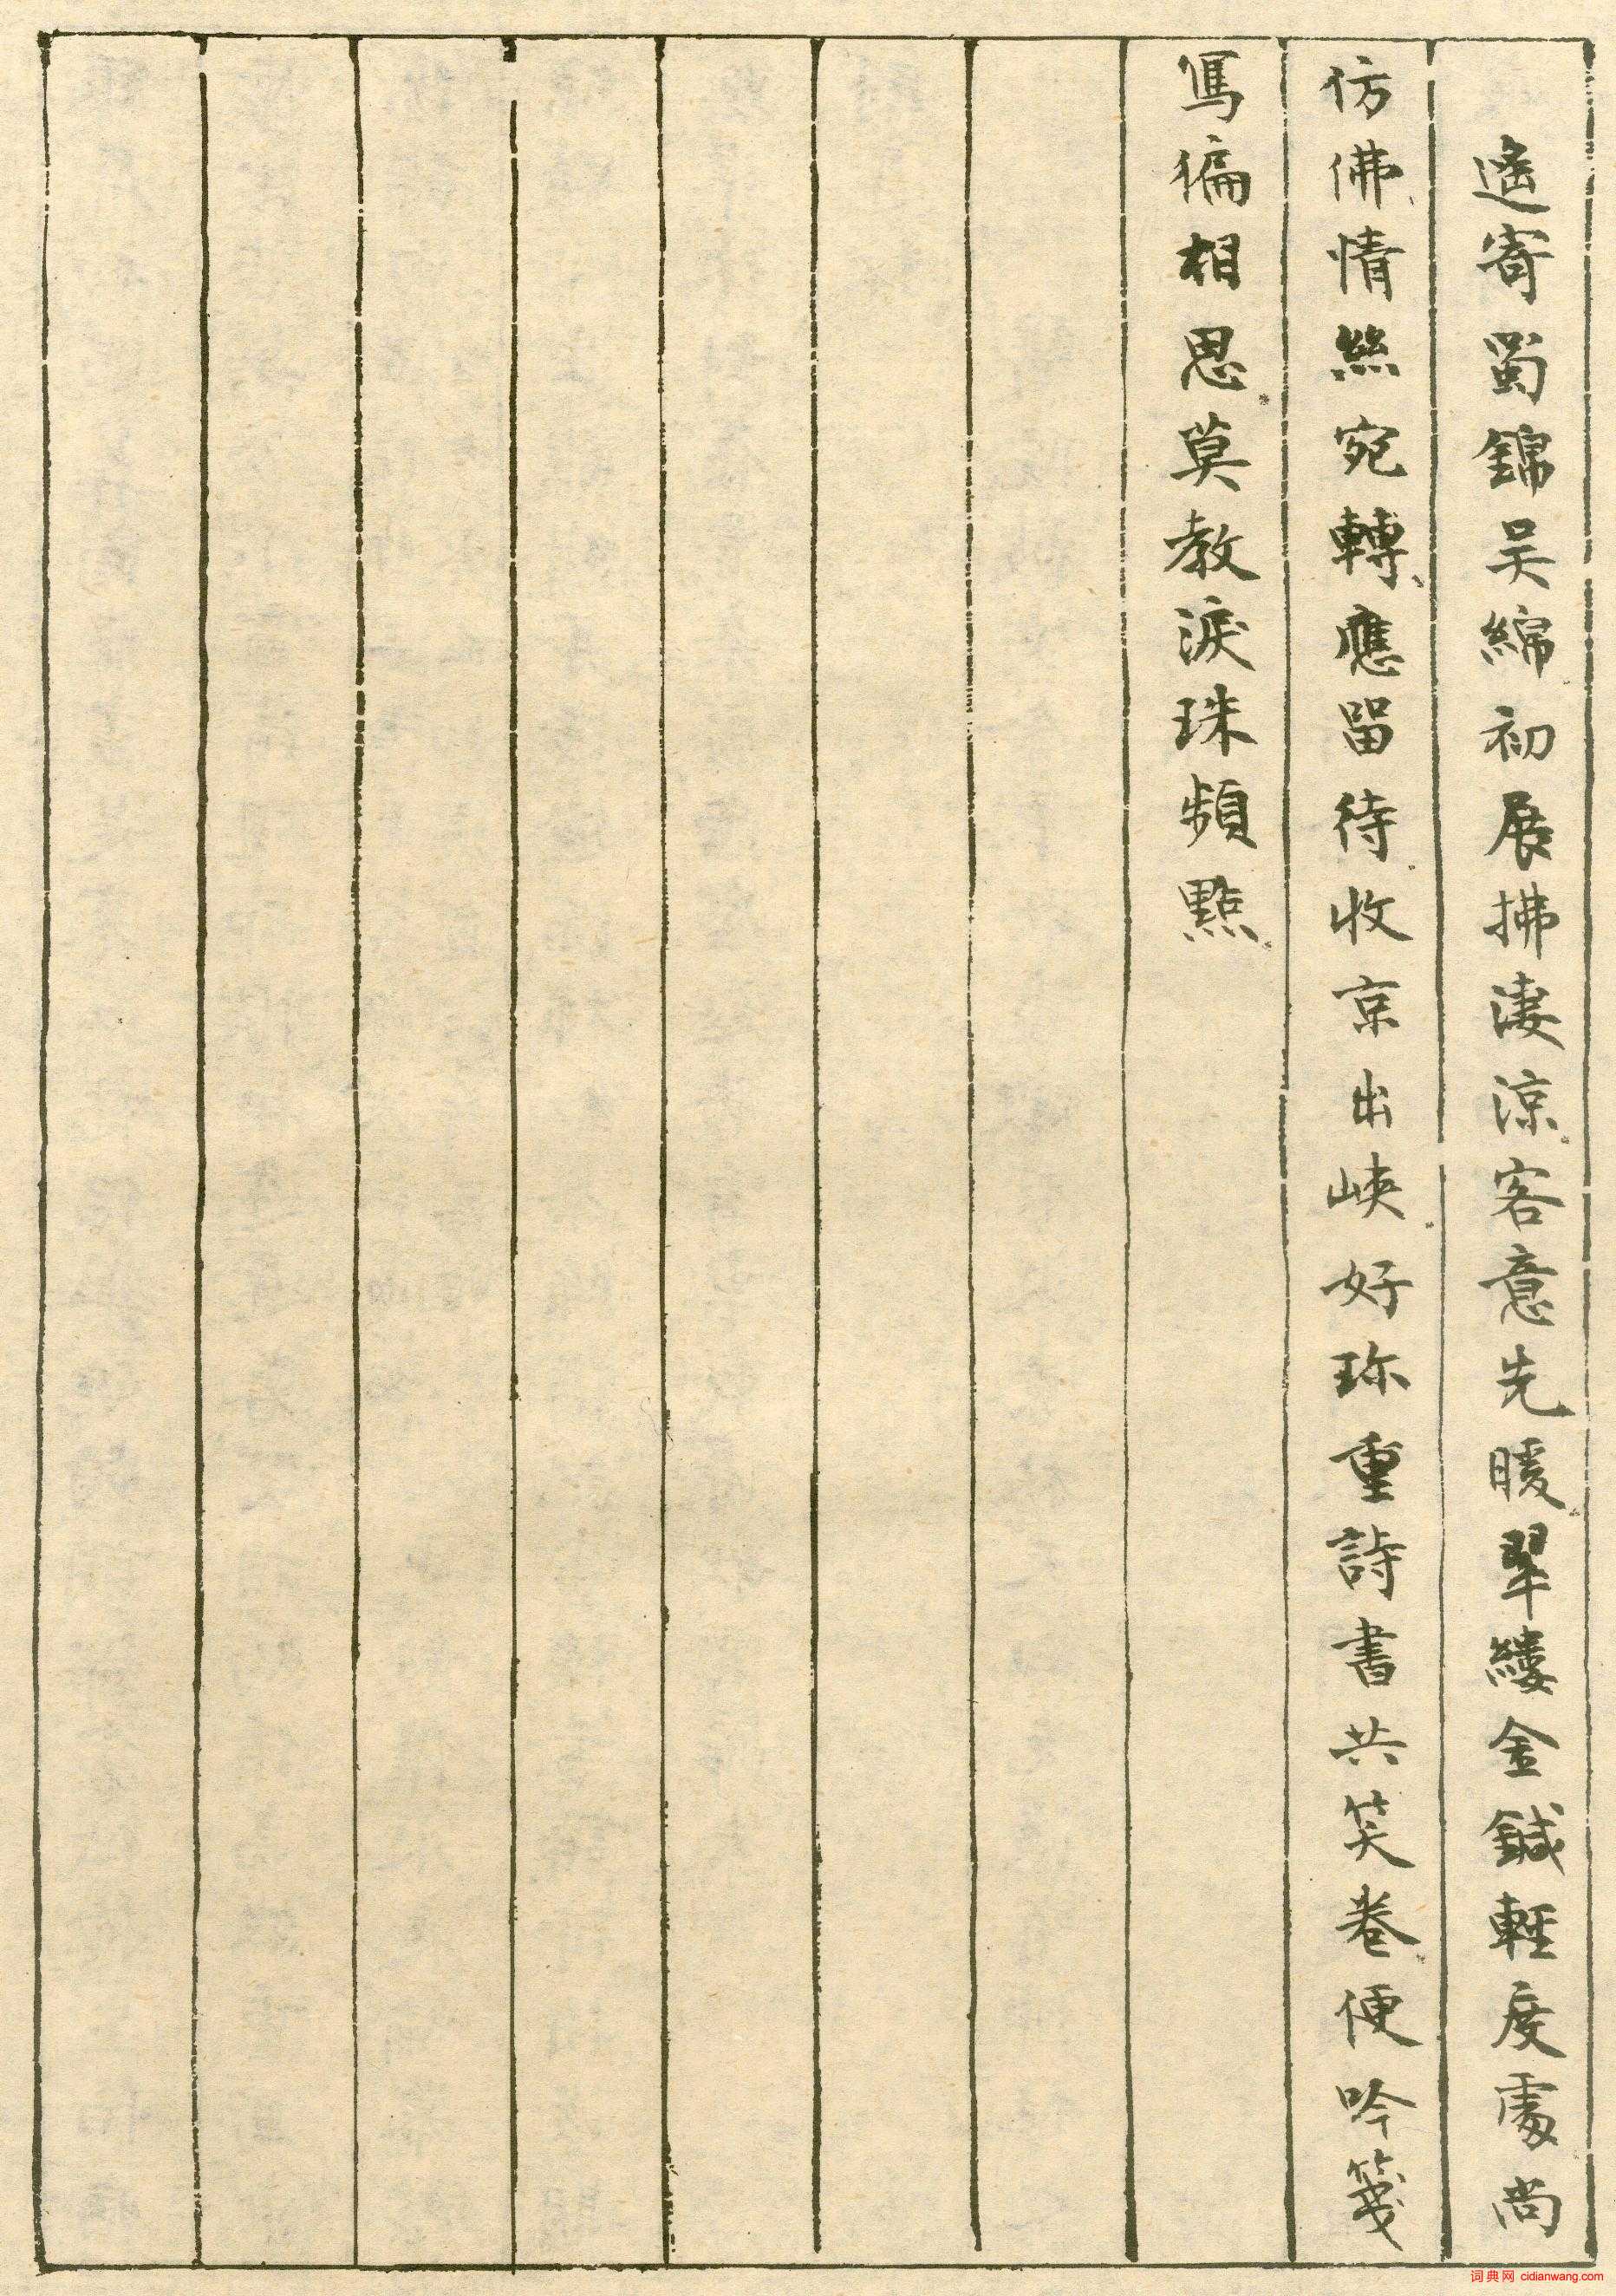 遙寄蜀錦吴綿初展拂淒涼客意先暖翠縷金鍼輕度處尚
仿佛情絲宛轉應留待收京出峽好珎重詩書共笑卷便吟箋
寫徧相思莫教淚珠頻點
词典网 cidianwang.com